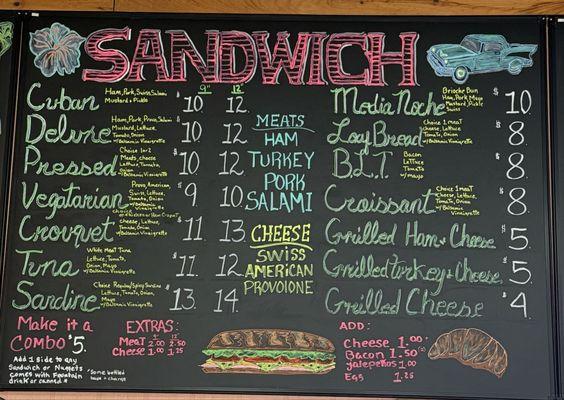 SANDWICH
9" 12"
Cuban Ham, Pork, Swiss, Salami $10 12.
Mustard & Pickle
Deluxe Ham, Pork, Prova, Salami $10 12
Mustard, Lettuce,
Tomato, Onion
w/Balsamic Vinaigrette
Pressed Choice 1 or 2 $10 12
Meats, cheese
Lettuce, Tomato,
Onion
w/Balsamic Vinaigrette
Vegetarian Prova, American, $9 10
Swiss, Lettuce,
Tomato, Onion
w/Balsamic Vinaigrette
Croquet choice of chicken or Ham Croquet $11 13
Cheese, Lettuce,
Tomato, Onion
w/Balsamic Vinaigrette
Tuna White Meat Tuna $11. 12
Lettuce, Tomato,
Onion, Mayo
w/Balsamic Vinaigrette
Sardine Choice Regular/Spicy Sardine $13. 14
Lettuce, Tomato, Onion,
Mayo
w/Balsamic Vinaigrette
MEATS
HAM
TURKEY
PORK
SALAMI
CHEESE
SWISS
AMERICAN
PROVOLONE
Media Noche Brioche Bun $10.
Ham, Pork Mayo
Mustard, Pickle
Swiss
Loaf Bread Choice 1 meat $8
cheese, Lettuce
Tomato, Onion
w/Balsamic Vinaigrette
B.L.T. Bacon $8
Lettuce
Tomato
w/mayo
Croissant Choice 1 Meat $8
Cheese, Lettuce
Tomato, Onion
w/Balsamic Vinaigrette
Grilled Ham & Cheese $5.
Grilled turkey & Cheese $5
Grilled Cheese $4
Make it a
COMBO $5.
Add 1 Side to any
Sandwich or Nuggets
comes with Fountain
drink or canned
*Some bottled
EXTRAS:
9" 12"
Meat 2.00 2.50
Cheese 1.00 1.25
ADD:
Cheese 1.00
Bacon 1.50
jalapeños 1.00
Egg 1.25